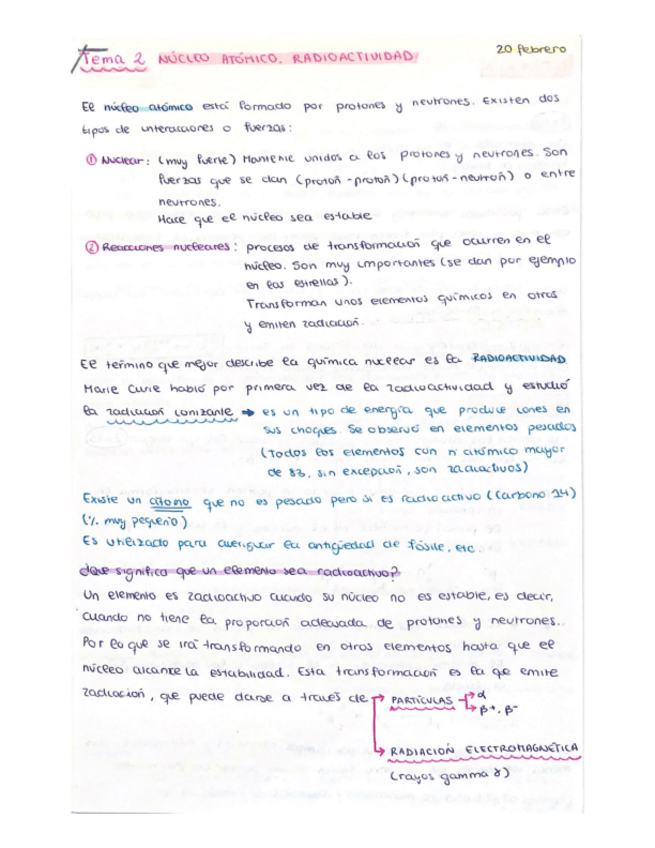 Tema 2 NÚCLEO ATÓMICO. RADIOACTIVIDAD
20 febrero
El núcleo atómico está formado por protones y neutrones. Existen dos
tipos de interacciones o fuerzas:
① Nuclear: (muy fuerte) Mantiene unidos a los protones y neutrones. Son
fuerzas que se dan (protón-protón) (protón-neutrón) o entre
neutrones.
Hace que el núcleo sea estable
② Reacciones nucleares: procesos de transformación que ocurren en el
núcleo. Son muy importantes (se dan por ejemplo
en las estrellas).
Transforman unos elementos químicos en otros
y emiten radiación.
El termino que mejor describe la química nuclear es la RADIOACTIVIDAD
Marie Curie habló por primera vez de la radioactividad y estudió
la radiación ionizante → es un tipo de energía que produce iones en
sus choques. Se observó en elementos pesados
(Todos los elementos con nº atómico mayor
de 83, sin excepción, son radiactivos)
Existe un átomo que no es pesado pero si es radioactivo (Carbono 14)
(% muy pequeño)
Es utilizado para averiguar la antigüedad de fósile, etc
¿Que significa que un elemento sea radioactivo?
Un elemento es radioactivo cuando su núcleo no es estable, es decir,
cuando no tiene la proporción adecuada de protones y neutrones.
Por lo que se irá transformando en otros elementos hasta que el
núcleo alcance la estabilidad. Esta transformación es la que emite
radiación, que puede darse a través de → PARTÍCULAS → α
→ β+, β-
→ RADIACIÓN ELECTROMAGNÉTICA
(rayos gamma γ)